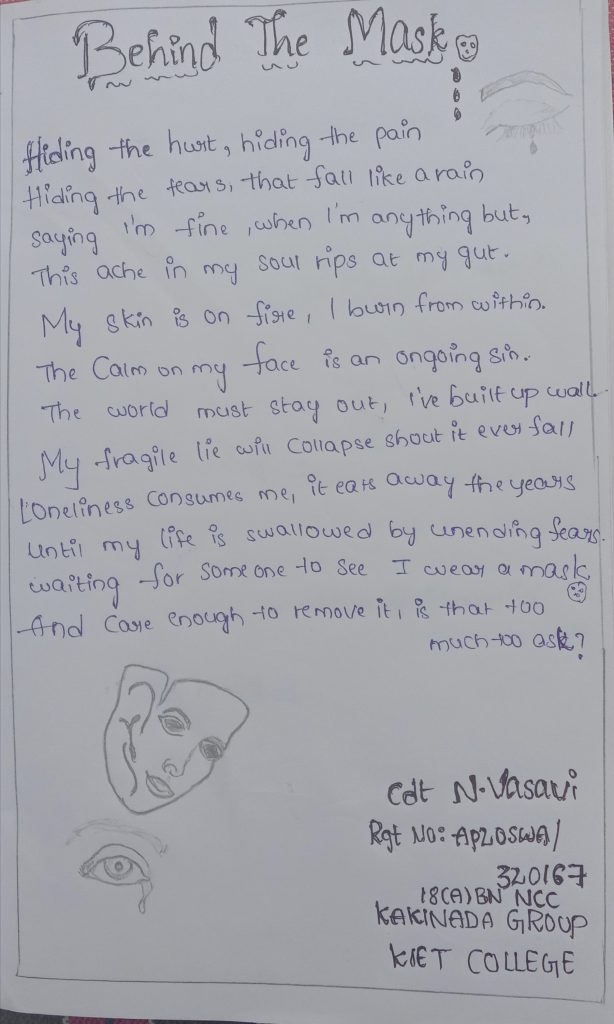 Behind The Mask
Hiding the hurt, hiding the pain
Hiding the tears, that fall like a rain
saying I'm fine, when I'm anything but,
This ache in my soul rips at my gut.
My skin is on fire, I burn from within.
The Calm on my face is an ongoing sin.
The world must stay out, I've built up wall
My fragile lie will Collapse shout it ever fall
Loneliness consumes me, it eats away the years
Until my life is swallowed by unending fears.
waiting for Someone to See I wear a mask
And Care enough to remove it, is that too
much too ask?
Cdt N.Vasavi
Rgt No: AP20SWA/
320167
18(A)BN NCC
KAKINADA GROUP
KIET COLLEGE